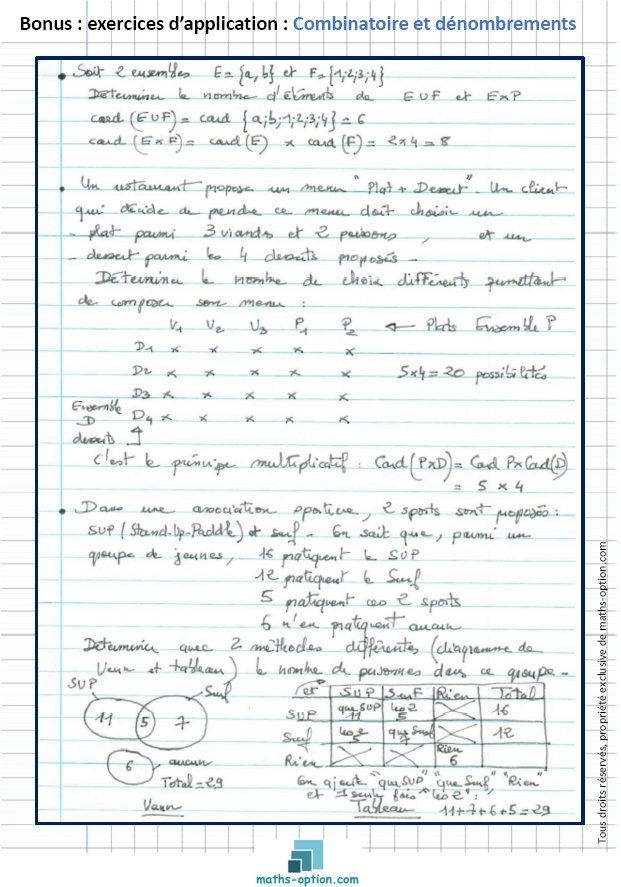 Bonus : exercices d'application : Combinatoire et dénombrements
• Soit 2 ensembles E = {a, b} et F = {1;2;3;4}
Déterminer le nombre d'éléments de E∪F et E×F
card (E∪F) = card {a;b;1;2;3;4} = 6
card (E×F) = card (E) × card (F) = 2×4 = 8
• Un restaurant propose un menu "Plat + Dessert". Un client
qui décide de prendre ce menu doit choisir un
- plat parmi 3 viandes et 2 poissons, et un
- dessert parmi les 4 desserts proposés -
Déterminer le nombre de choix différents permettant
de composer son menu :
V1 V2 V3 P1 P2 ← Plats Ensemble P
D1 × × × × ×
D2 × × × × × 5×4 = 20 possibilités
D3 × × × × ×
Ensemble D D4 × × × × ×
desserts ↑
C'est le principe multiplicatif : Card (P×D) = Card P × Card (D)
= 5 × 4
• Dans une association sportive, 2 sports sont proposés :
SUP (Stand-Up-Paddle) et surf - On sait que, parmi un
groupe de jeunes, 16 pratiquent le SUP
12 pratiquent le Surf
5 pratiquent ces 2 sports
6 n'en pratiquent aucun
Déterminer avec 2 méthodes différentes (diagramme de
Venn et tableau) le nombre de personnes dans ce groupe -
SUP Surf
11 5 7
6 aucun
Total = 29
Venn
"et" SUP Surf Rien Total
SUP que SUP 11 les 2 5 16
Surf les 2 5 que Surf 7 12
Rien Rien 6
On ajoute "que SUP" "que Surf" "Rien"
et 1 seule fois "les 2" :
Tableau 11+7+6+5 = 29
Tous droits réservés, propriété exclusive de maths-option.com
maths-option.com